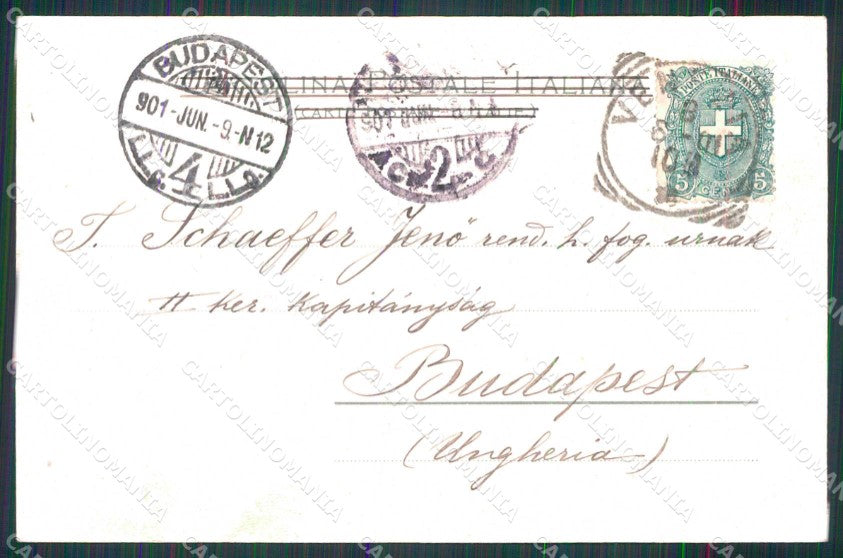 BUDAPEST
901-JUN.-9.-N12
4
CARTOLINA POSTALE ITALIANA
POSTE ITALIANE
5 CENT. 5
2
T. Schaeffer Jenő rend. h. fog. urnak
II ker. Kapitányság
Budapest
(Ungheria)
CARTOLINOMANIA